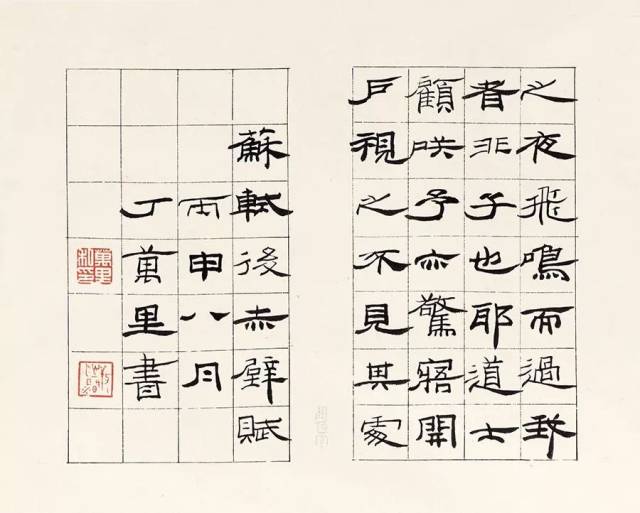 之夜飛鳴而過我
者非子也耶道士
顧咲予亦驚寤開
戶視之不見其處
蘇軾後赤壁賦
丙申八月
丁萬里書